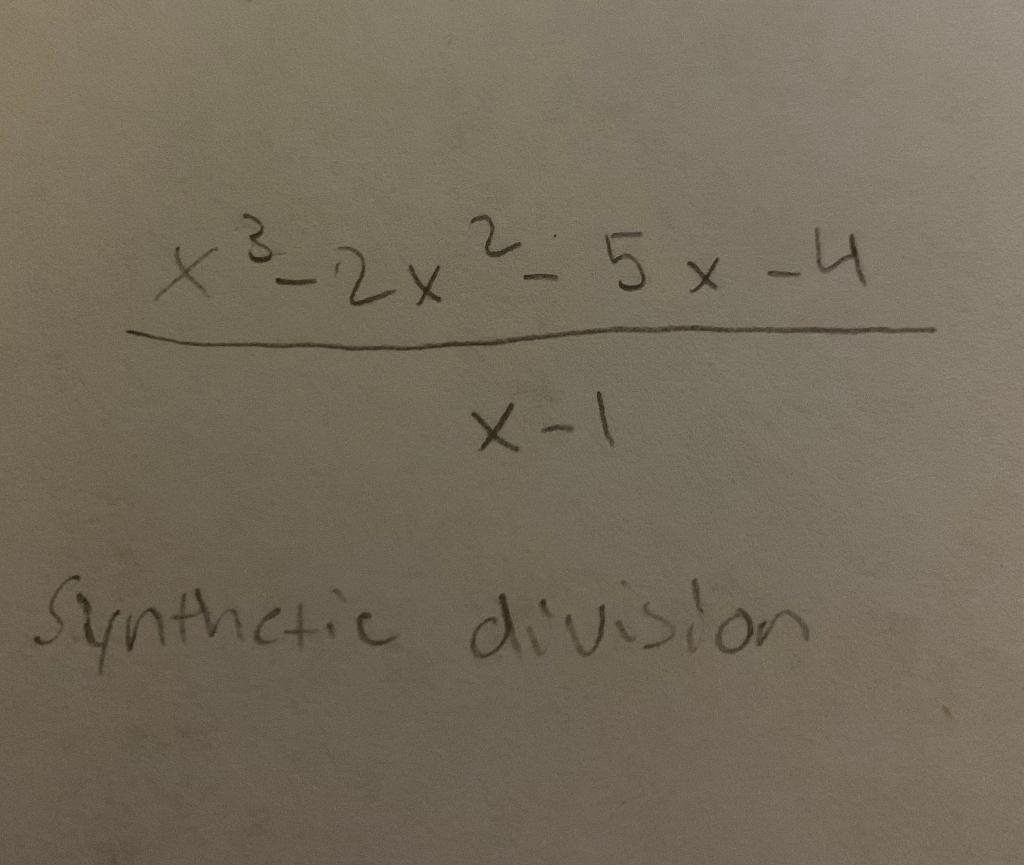 x³ - 2x² - 5x - 4
x - 1
Synthetic division